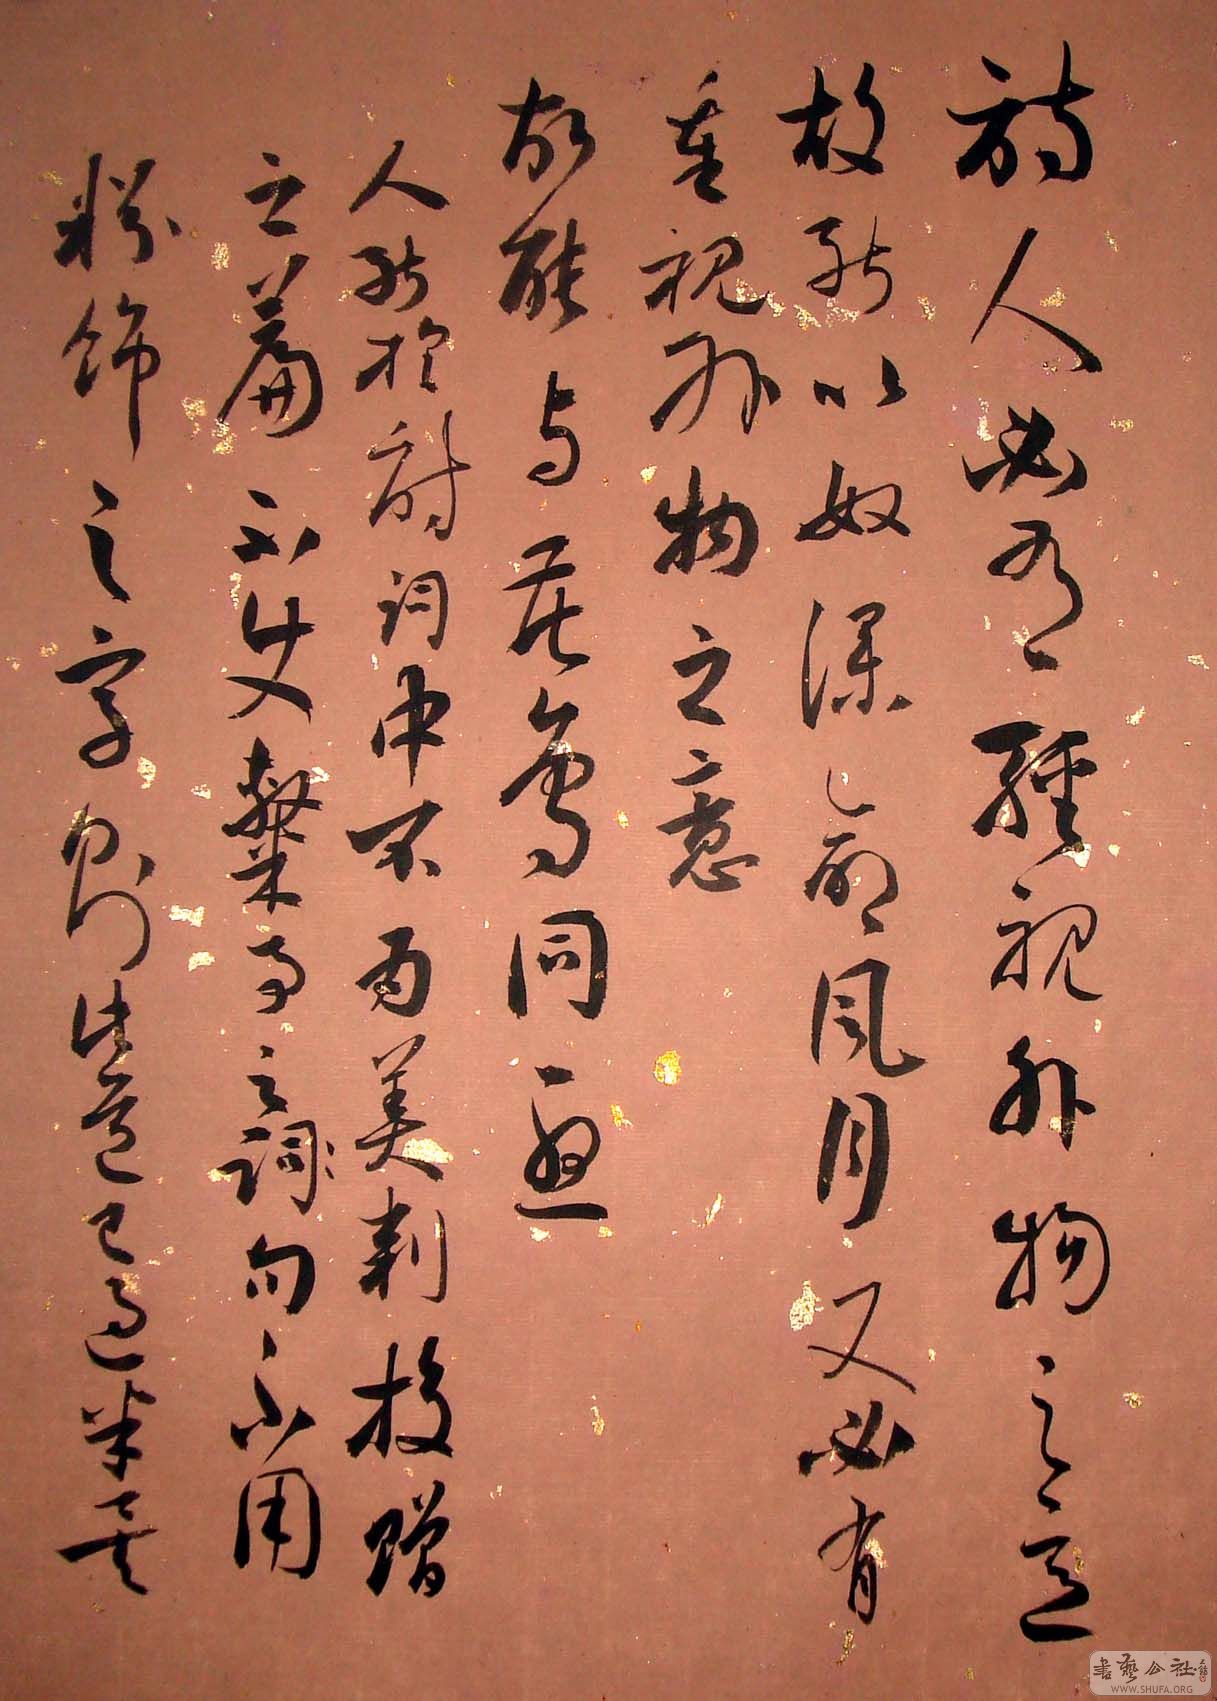 詩人必有輕視外物之意
故能以奴僕命風月又必有
重視外物之意
故能与花鳥同
人能於詩詞中不為美刺投贈
之篇不使隸事之詞句不用
粉飾之字則此道已過半矣
書藝公社
WWW.SHUFA.ORG